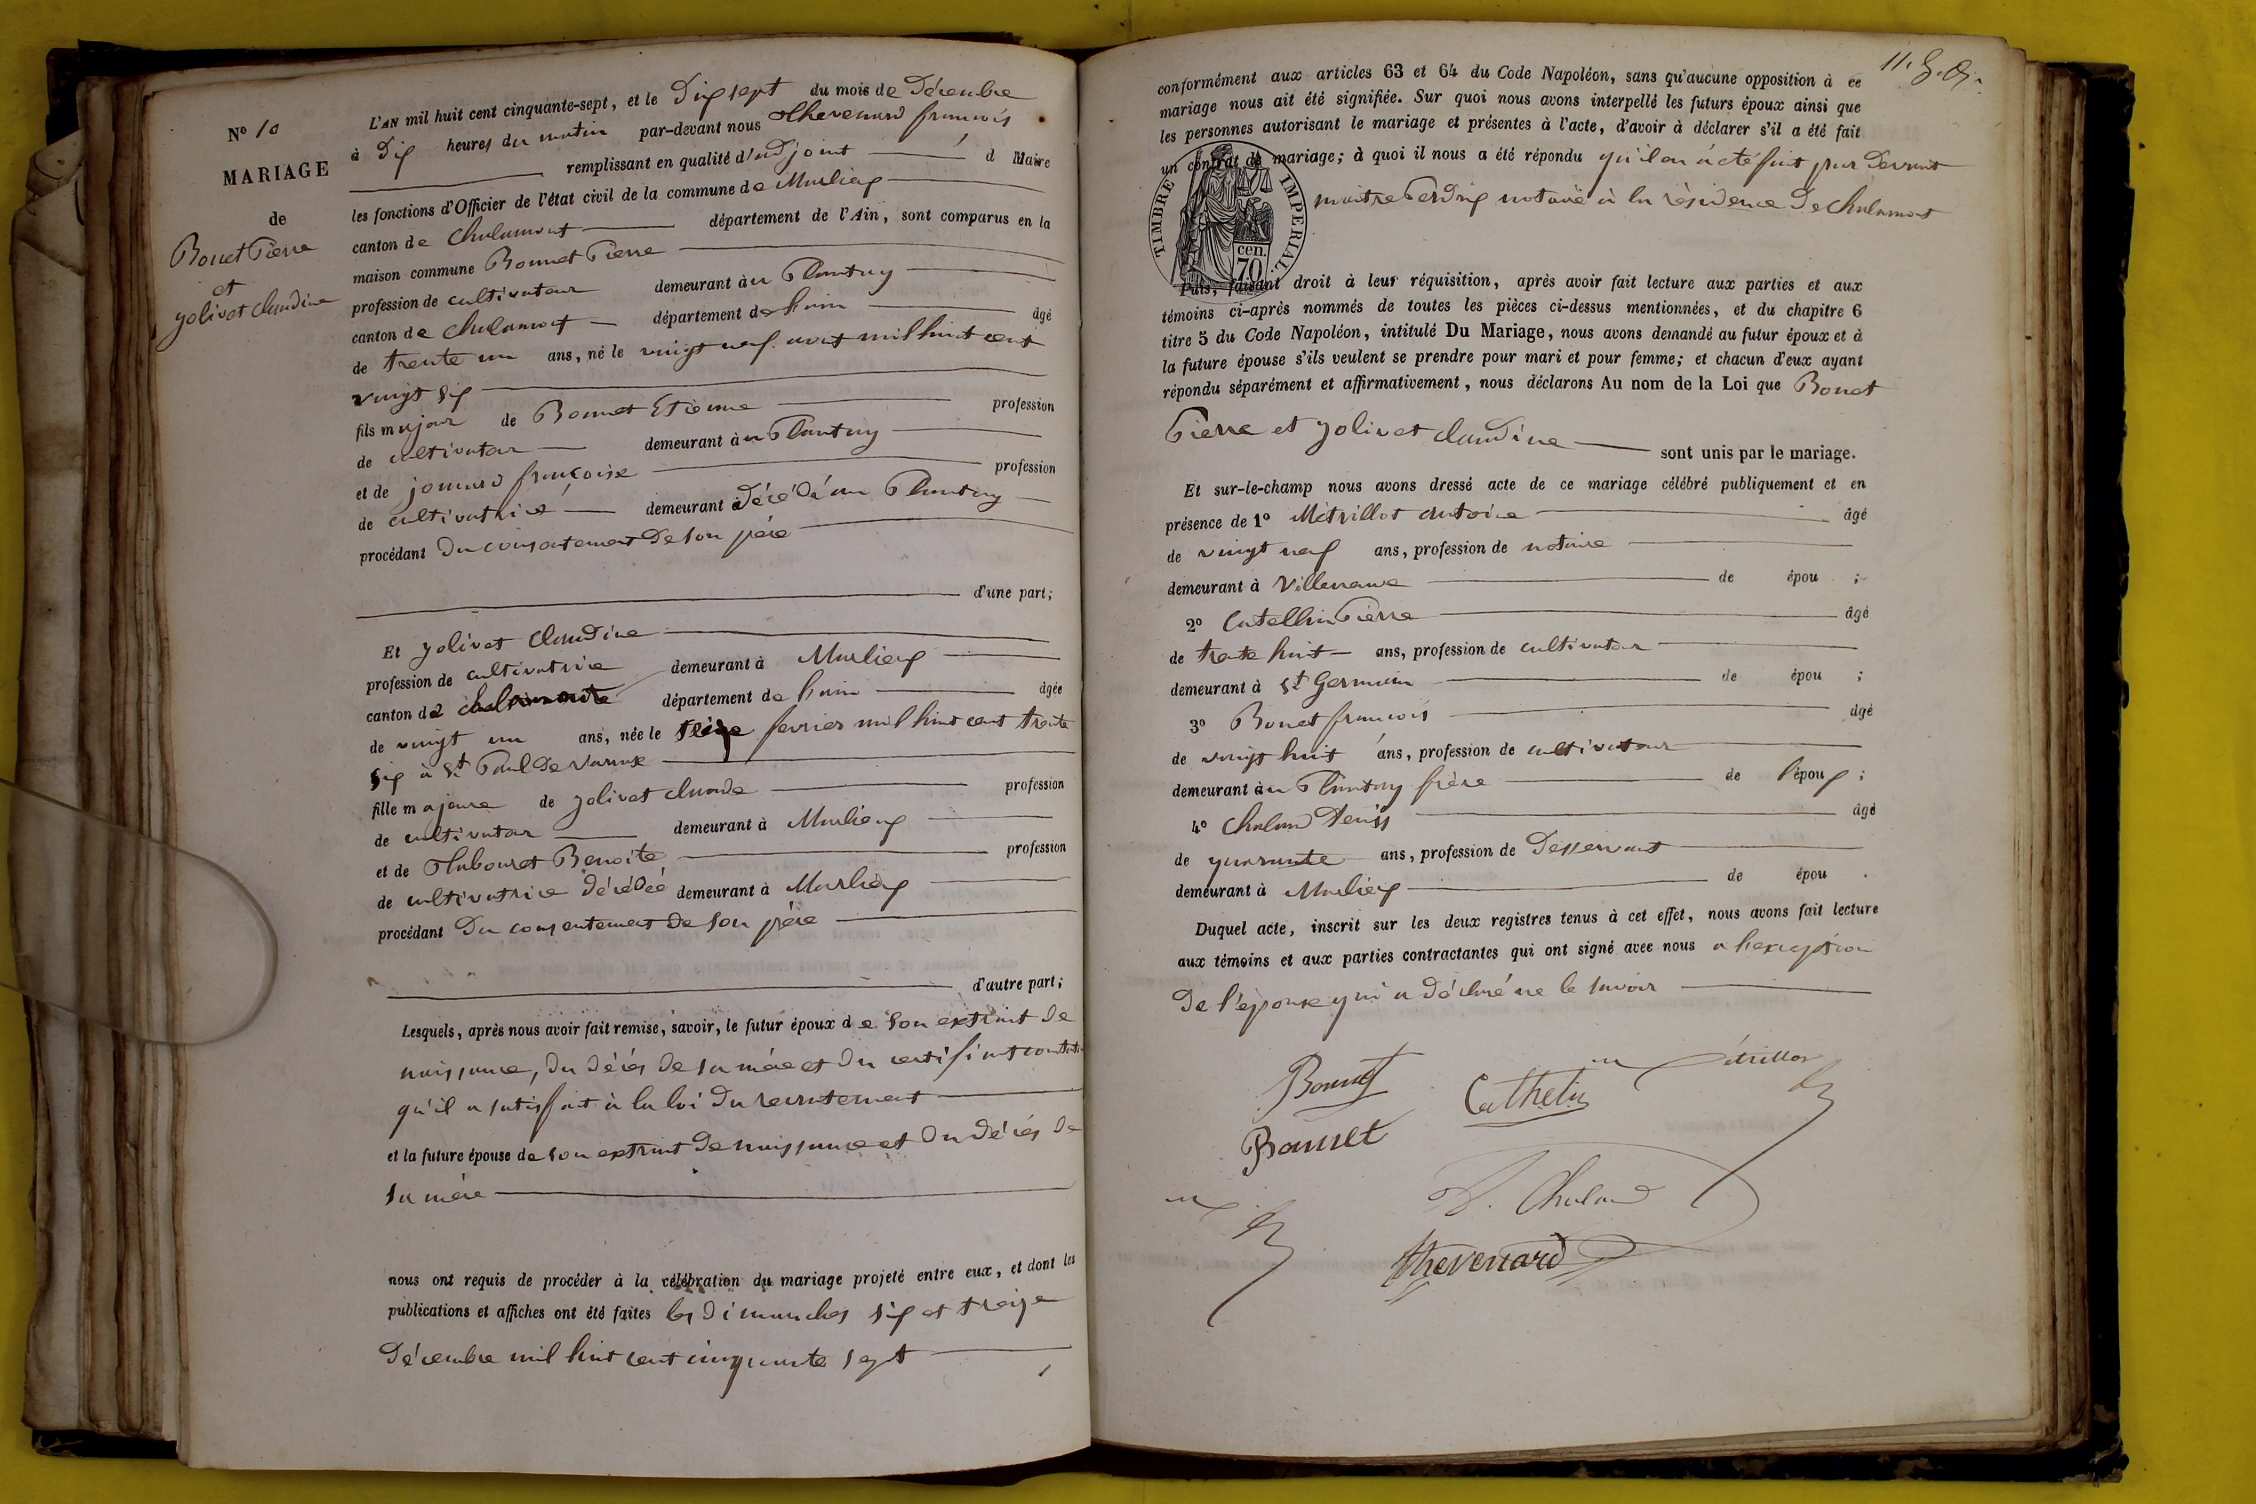 N° 10
MARIAGE
de
Bonet Pierre
et
jolivet claudine
L'AN mil huit cent cinquante-sept, et le Dix sept du mois de Décembre
à Dix heures du matin par-devant nous thevenard francois
remplissant en qualité d'adjoint d Maire
les fonctions d'Officier de l'état civil de la commune de Marlieux
canton de chalamont département de l'Ain, sont comparus en la
maison commune Bonnet Pierre
profession de cultivateur demeurant àu Plantay
canton de chalamont département de hain âgé
de trente un ans, né le vingt neuf aout mil huit cent
vingt six
fils majeur de Bonnet Etienne profession
de cultivateur demeurant àu Plantay
et de jomard françoise profession
de cultivatrice demeurant à Décédé au Plantay
procédant Du consentement De son père
d'une part;
Et jolivet claudine
profession de cultivatrice demeurant à Marlieux
canton de chalamont département de hain âgée
de vingt un ans, née le seize fevrier mil huit cent trente
six à St Paul De Varax
fille majeure de jolivet claude profession
de cultivateur demeurant à Marlieux
et de thabouret Benoite profession
de cultivatrice Décédée demeurant à Marlieux
procédant Du consentement De son père
d'autre part;
Lesquels, après nous avoir fait remise, savoir, le futur époux de son extrait De
naissance, Du Décés De sa mère et Du certificat
qu'il a satisfait à la loi Du recrutement
et la future épouse de son extrait De naissance et Du Décés De
sa mère
nous ont requis de procéder à la célébration du mariage projeté entre eux, et dont les
publications et affiches ont été faites les Dimanches six et treize
Décembre mil huit cent cinquante sept
conformément aux articles 63 et 64 du Code Napoléon, sans qu'aucune opposition à ce
mariage nous ait été signifiée. Sur quoi nous avons interpellé les futurs époux ainsi que
les personnes autorisant le mariage et présentes à l'acte, d'avoir à déclarer s'il a été fait
un contrat de mariage; à quoi il nous a été répondu qu'il en à été fait par Devant
maitre Perdrix notaire à la résidence De chalamont
TIMBRE IMPERIAL
cen.
70
Puis, faisant droit à leur réquisition, après avoir fait lecture aux parties et aux
témoins ci-après nommés de toutes les pièces ci-dessus mentionnées, et du chapitre 6
titre 5 du Code Napoléon, intitulé Du Mariage, nous avons demandé au futur époux et à
la future épouse s'ils veulent se prendre pour mari et pour femme; et chacun d'eux ayant
répondu séparément et affirmativement, nous déclarons Au nom de la Loi que Bonet
Pierre et jolivet claudine sont unis par le mariage.
Et sur-le-champ nous avons dressé acte de ce mariage célébré publiquement et en
présence de 1° Métrillot Antoine âgé
de vingt neuf ans, profession de notaire
demeurant à Villeneuve de épou ;
2° Catellin Pierre âgé
de trente huit ans, profession de cultivateur
demeurant à St Germain de épou ;
3° Bonet francois âgé
de vingt huit ans, profession de cultivateur
demeurant àu Plantay frère de l'époux ;
4° Chaland Denis âgé
de quarante ans, profession de Desservant
demeurant à Marlieux de épou .
Duquel acte, inscrit sur les deux registres tenus à cet effet, nous avons fait lecture
aux témoins et aux parties contractantes qui ont signé avec nous a l'exception
De l'épouse qui a Déclaré ne le savoir
Bonnet
Cathelin
Métrillot
Bonnet
D. Chaland
thevenard